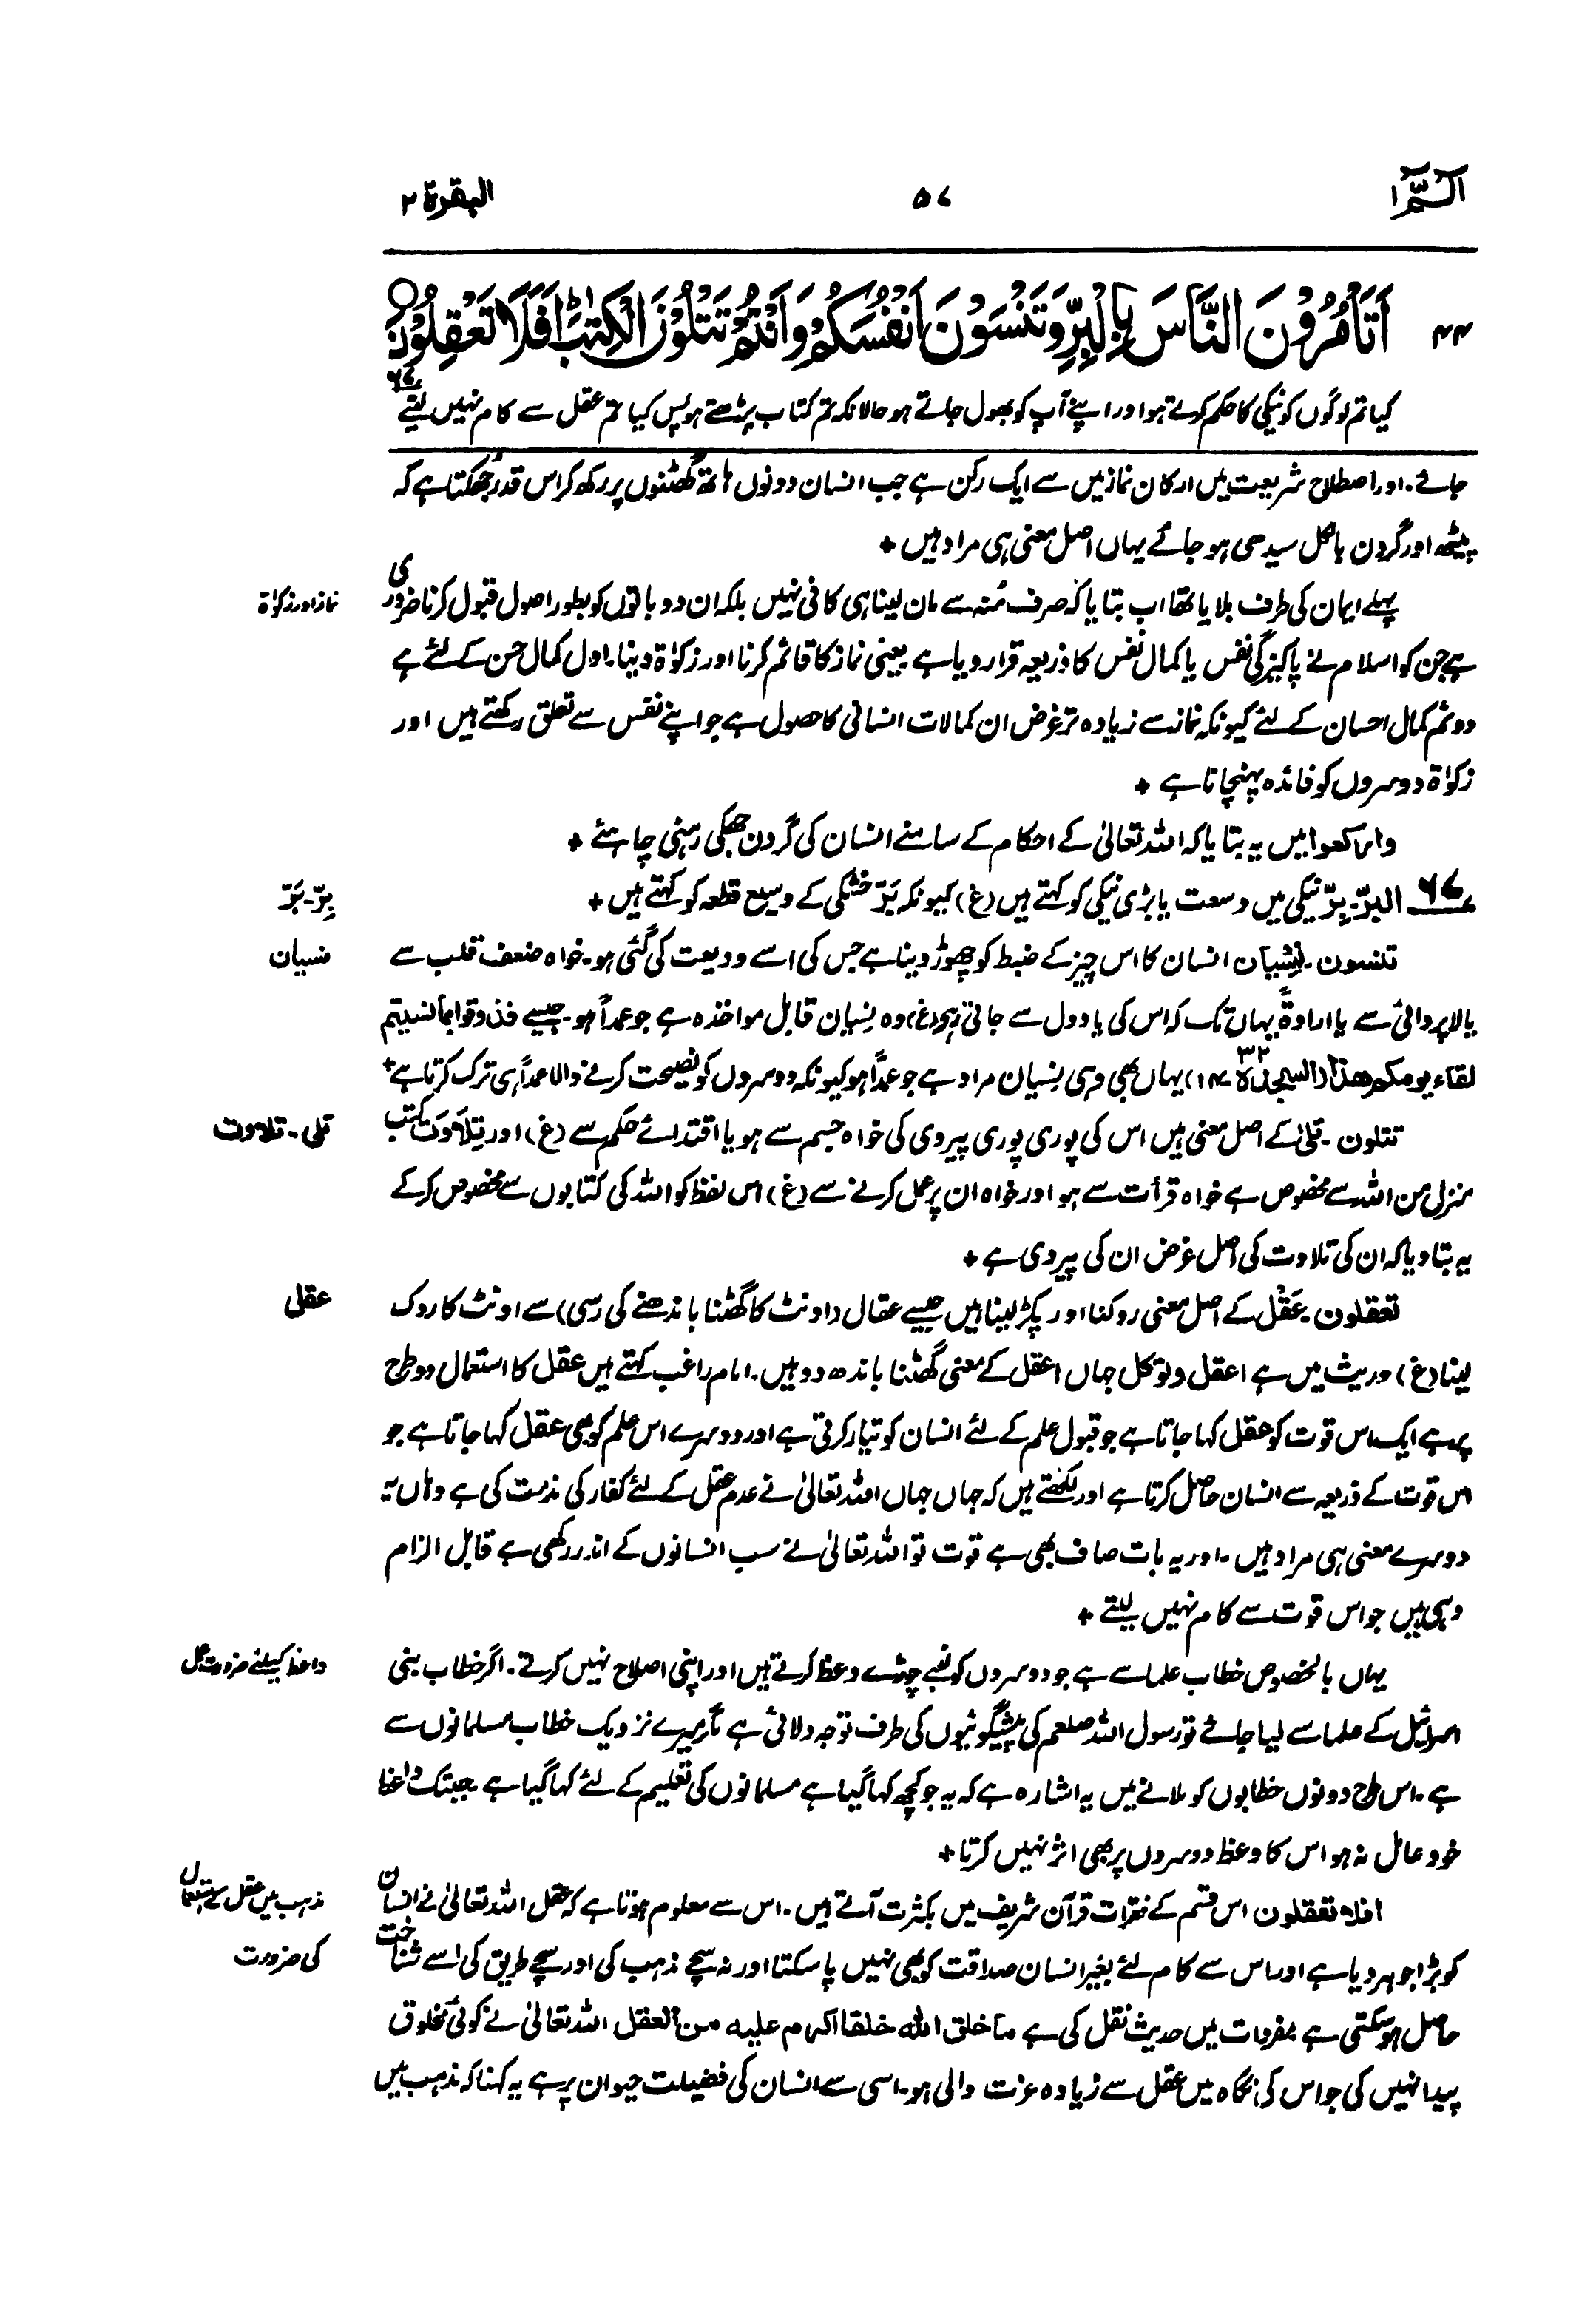 الٓمّٓ ١
٥٧
البقرة ٢
٤٤ اَتَاْمُرُوْنَ النَّاسَ بِالْبِرِّ وَتَنْسَوْنَ اَنْفُسَكُمْ وَاَنْتُمْ تَتْلُوْنَ الْكِتٰبَ ؕ اَفَلَا تَعْقِلُوْنَ ○
کیا تم لوگوں کو نیکی کا حکم کرتے ہو اور اپنے آپ کو بھول جاتے ہو حالانکہ تم کتاب پڑھتے ہو پس کیا تم عقل سے کام نہیں لیتے ٦٧
جائے۔ اور اصطلاح شریعت میں ارکان نماز میں سے ایک رکن ہے جب انسان دونوں ہاتھ گھٹنوں پر رکھ کر اس قدر جھکتا ہے کہ
پیٹھ اور گردن بالکل سیدھی ہو جائے یہاں اصل معنی ہی مراد ہیں +
پہلے ایمان کی طرف بلایا تھا اب بتایا کہ صرف مُنہ سے مان لینا ہی کافی نہیں بلکہ ان دو باتوں کو بطور اصول قبول کرنا ضروری
نماز اور زکوٰة
ہے جن کو اسلام نے پاکیزگی نفس یا کمال نفس کا ذریعہ قرار دیا ہے یعنی نماز کا قائم کرنا اور زکوٰة دینا۔ اول کمال حسن کے لئے ہے
دوئم کمال احسان کے لئے کیونکہ نماز سے زیادہ تر غرض ان کمالات انسانی کا حصول ہے جو اپنے نفس سے تعلق رکھتے ہیں اور
زکوٰة دوسروں کو فائدہ پہنچاتا ہے +
وارکعوا میں یہ بتایا کہ اللہ تعالیٰ کے احکام کے سامنے انسان کی گردن جھکی رہنی چاہئے +
٦٧ البرّ۔ بِرّ نیکی میں وسعت یا بڑی نیکی کو کہتے ہیں (غ) کیونکہ بَرّ خشکی کے وسیع قطعہ کو کہتے ہیں +
بِرّ۔ بَرّ
تنسون۔ نِسْیان انسان کا اس چیز کے ضبط کو چھوڑ دینا ہے جس کی اسے ودیعت کی گئی ہو۔ خواہ ضعف قلب سے
نسیان
یا لاپروائی سے یا ارادةً یہاں تک کہ اس کی یاد دل سے جاتی رہی (غ) وہ نِسیان قابل مواخذہ ہے جو عمداً ہو۔ جیسے فذوقوا بما نسیتم
لقاء یومکم ھذا (السجدة ٣٢ ۔ ١٤) یہاں بھی وہی نِسیان مراد ہے جو عمداً ہو کیونکہ دوسروں کو نصیحت کرنے والا عمداً ہی ترک کرتا ہے +
تتلون۔ تلیٰ کے اصل معنی ہیں اس کی پوری پوری پیروی کی خواہ جسم سے ہو یا اقتدائے حکم سے (غ) اور تِلَاوَت کتب
تلی۔ تلاوت
منزل من اللہ سے مخصوص ہے خواہ قرأت سے ہو اور خواہ ان پر عمل کرنے سے (غ) اس لفظ کو اللہ کی کتابوں سے مخصوص کر کے
یہ بتا دیا کہ ان کی تلاوت کی اصل غرض ان کی پیروی ہے +
تعقلون۔ عَقْل کے اصل معنی روکنا اور پکڑ لینا ہیں جیسے عقال (اونٹ کا گھٹنا باندھنے کی رسی) سے اونٹ کا روک
عقل
لینا (غ) حدیث میں ہے اعقل وتوکل جہاں اعقل کے معنی گھٹنا باندھ دو ہیں۔ امام راغب کہتے ہیں عقل کا استعمال دو طرح
پر ہے ایک اس قوت کو عقل کہا جاتا ہے جو قبول علم کے لئے انسان کو تیار کرتی ہے اور دوسرے اس علم کو بھی عقل کہا جاتا ہے جو
اس قوت کے ذریعہ سے انسان حاصل کرتا ہے اور لکھتے ہیں کہ جہاں جہاں اللہ تعالیٰ نے عدم عقل کے لئے کفار کی مذمت کی ہے وہاں یہ
دوسرے معنی ہی مراد ہیں۔ اور یہ بات صاف بھی ہے قوت تو اللہ تعالیٰ نے سب انسانوں کے اندر رکھی ہے قابل الزام
وہی ہیں جو اس قوت سے کام نہیں لیتے +
یہاں بالخصوص خطاب علما سے ہے جو دوسروں کو لمبے چوڑے وعظ کرتے ہیں اور اپنی اصلاح نہیں کرتے۔ اگر خطاب بنی
واعظ کیلئے ضرورت عمل
اسرائیل کے علما سے لیا جائے تو رسول اللہ صلعم کی پیشگوئیوں کی طرف توجہ دلائی ہے مگر میرے نزدیک خطاب مسلمانوں سے
ہے۔ اس طرح دونوں خطابوں کو ملانے میں یہ اشارہ ہے کہ یہ جو کچھ کہا گیا ہے مسلمانوں کی تعلیم کے لئے کہا گیا ہے۔ جبتک واعظ
خود عامل نہ ہو اس کا وعظ دوسروں پر بھی اثر نہیں کرتا +
افلا تعقلون اس قسم کے فقرات قرآن شریف میں بکثرت آتے ہیں۔ اس سے معلوم ہوتا ہے کہ عقل اللہ تعالیٰ نے انسان
مذہب میں عقل کے استعمال
کو بڑا جوہر دیا ہے اور اس سے کام لئے بغیر انسان صداقت کو بھی نہیں پا سکتا اور نہ سچے مذہب کی اور سچے طریق کی اسے شناخت
کی ضرورت
حاصل ہو سکتی ہے۔ مفردات میں حدیث نقل کی ہے ما خلق اللہ خلقا اکرم علیه من العقل اللہ تعالیٰ نے کوئی مخلوق
پیدا نہیں کی جو اس کی نگاہ میں عقل سے زیادہ عزت والی ہو۔ اسی سے انسان کی فضیلت حیوان پر ہے یہ کہنا کہ مذہب میں